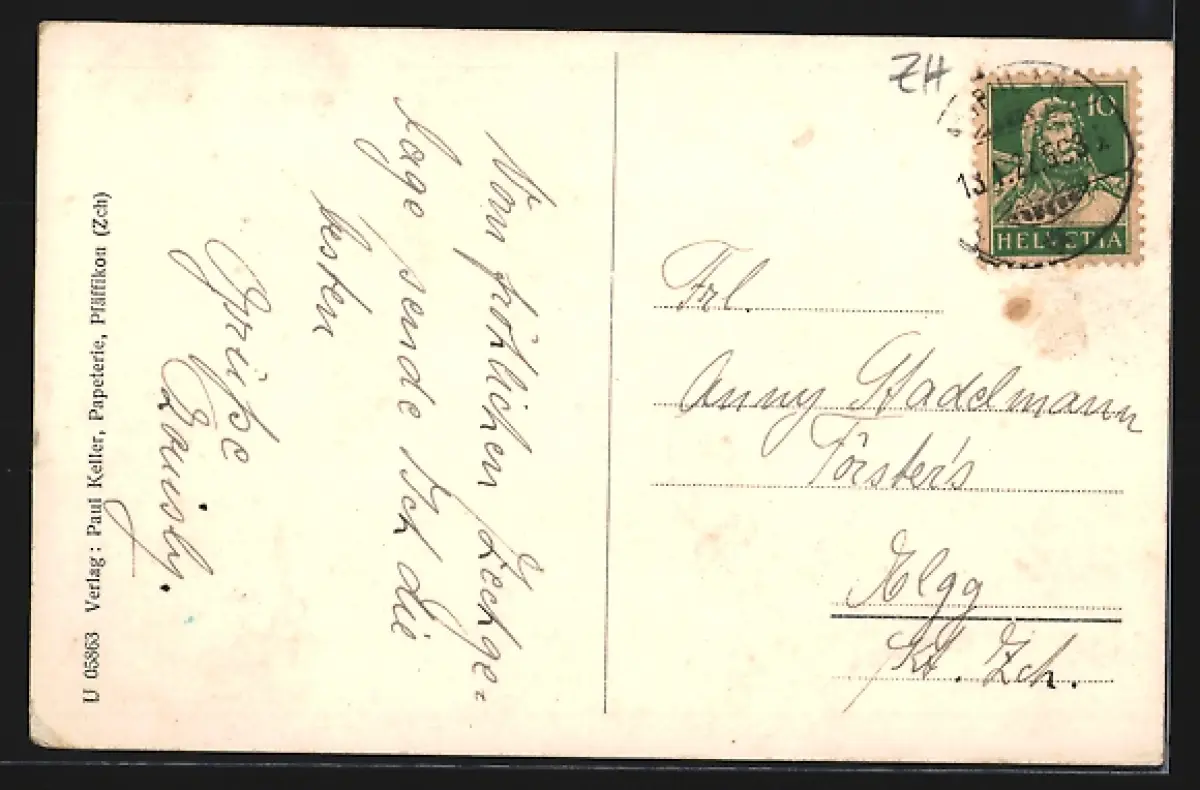 U 05863 Verlag: Paul Keller, Papeterie, Pfäffikon (Zch)
Vom fröhlichen Zechge-
lage sende Ich die
besten
Grüße
ZH
10
HELVETIA
Frl.
Anny Stadelmann
Förster's
Elgg
Kt. Zch.